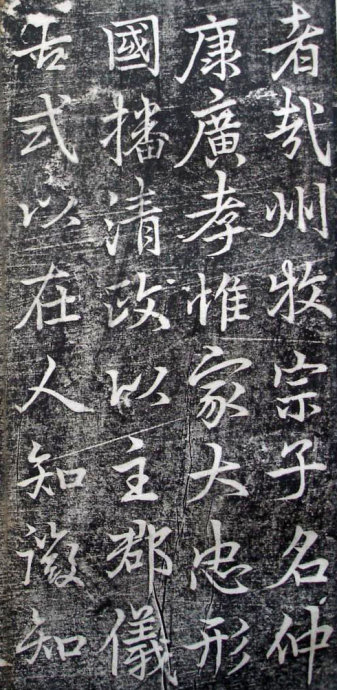 者哉州牧宗子名仲
康廣孝惟家大忠形
國播清政以主郡儀
古式以在人知微知